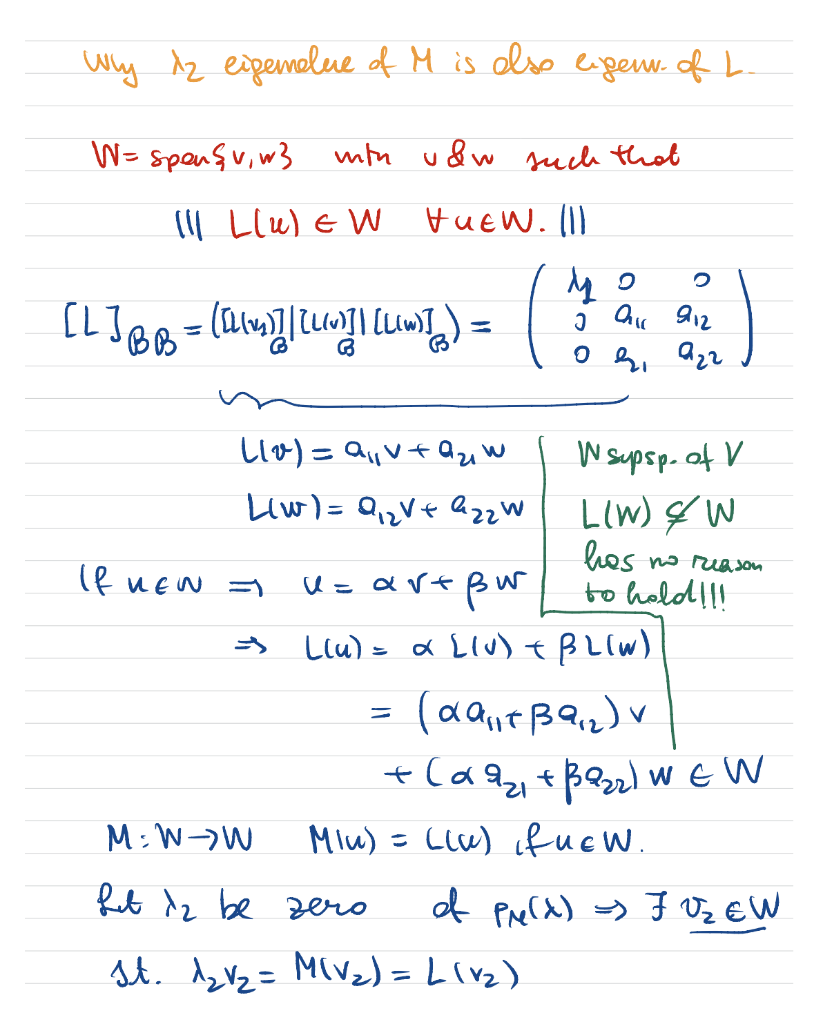 Why λ₂ eigenvalue of M is also eigenv. of L.
W = span{v, w} with v & w such that
||| L(u) ∈ W ∀u∈W. |||
[L]_{BB} = ([L(v₁)]_B | [L(v)]_B | [L(w)]_B) = ( λ₁ 0 0
0 a₁₁ a₁₂
0 a₂₁ a₂₂ )
L(v) = a₁₁v + a₂₁w
L(w) = a₁₂v + a₂₂w
W supsp. of V
L(W) ⊊ W
has no reason
to hold!!!
If u∈W ⇒ u = αv + βw
⇒ L(u) = α L(v) + β L(w)
= (αa₁₁ + βa₁₂) v
+ (αa₂₁ + βa₂₂) w ∈ W
M : W → W M(u) = L(u) if u∈W.
Let λ₂ be zero of p_M(λ) ⇒ ∃ v₂∈W
st. λ₂v₂ = M(v₂) = L(v₂)